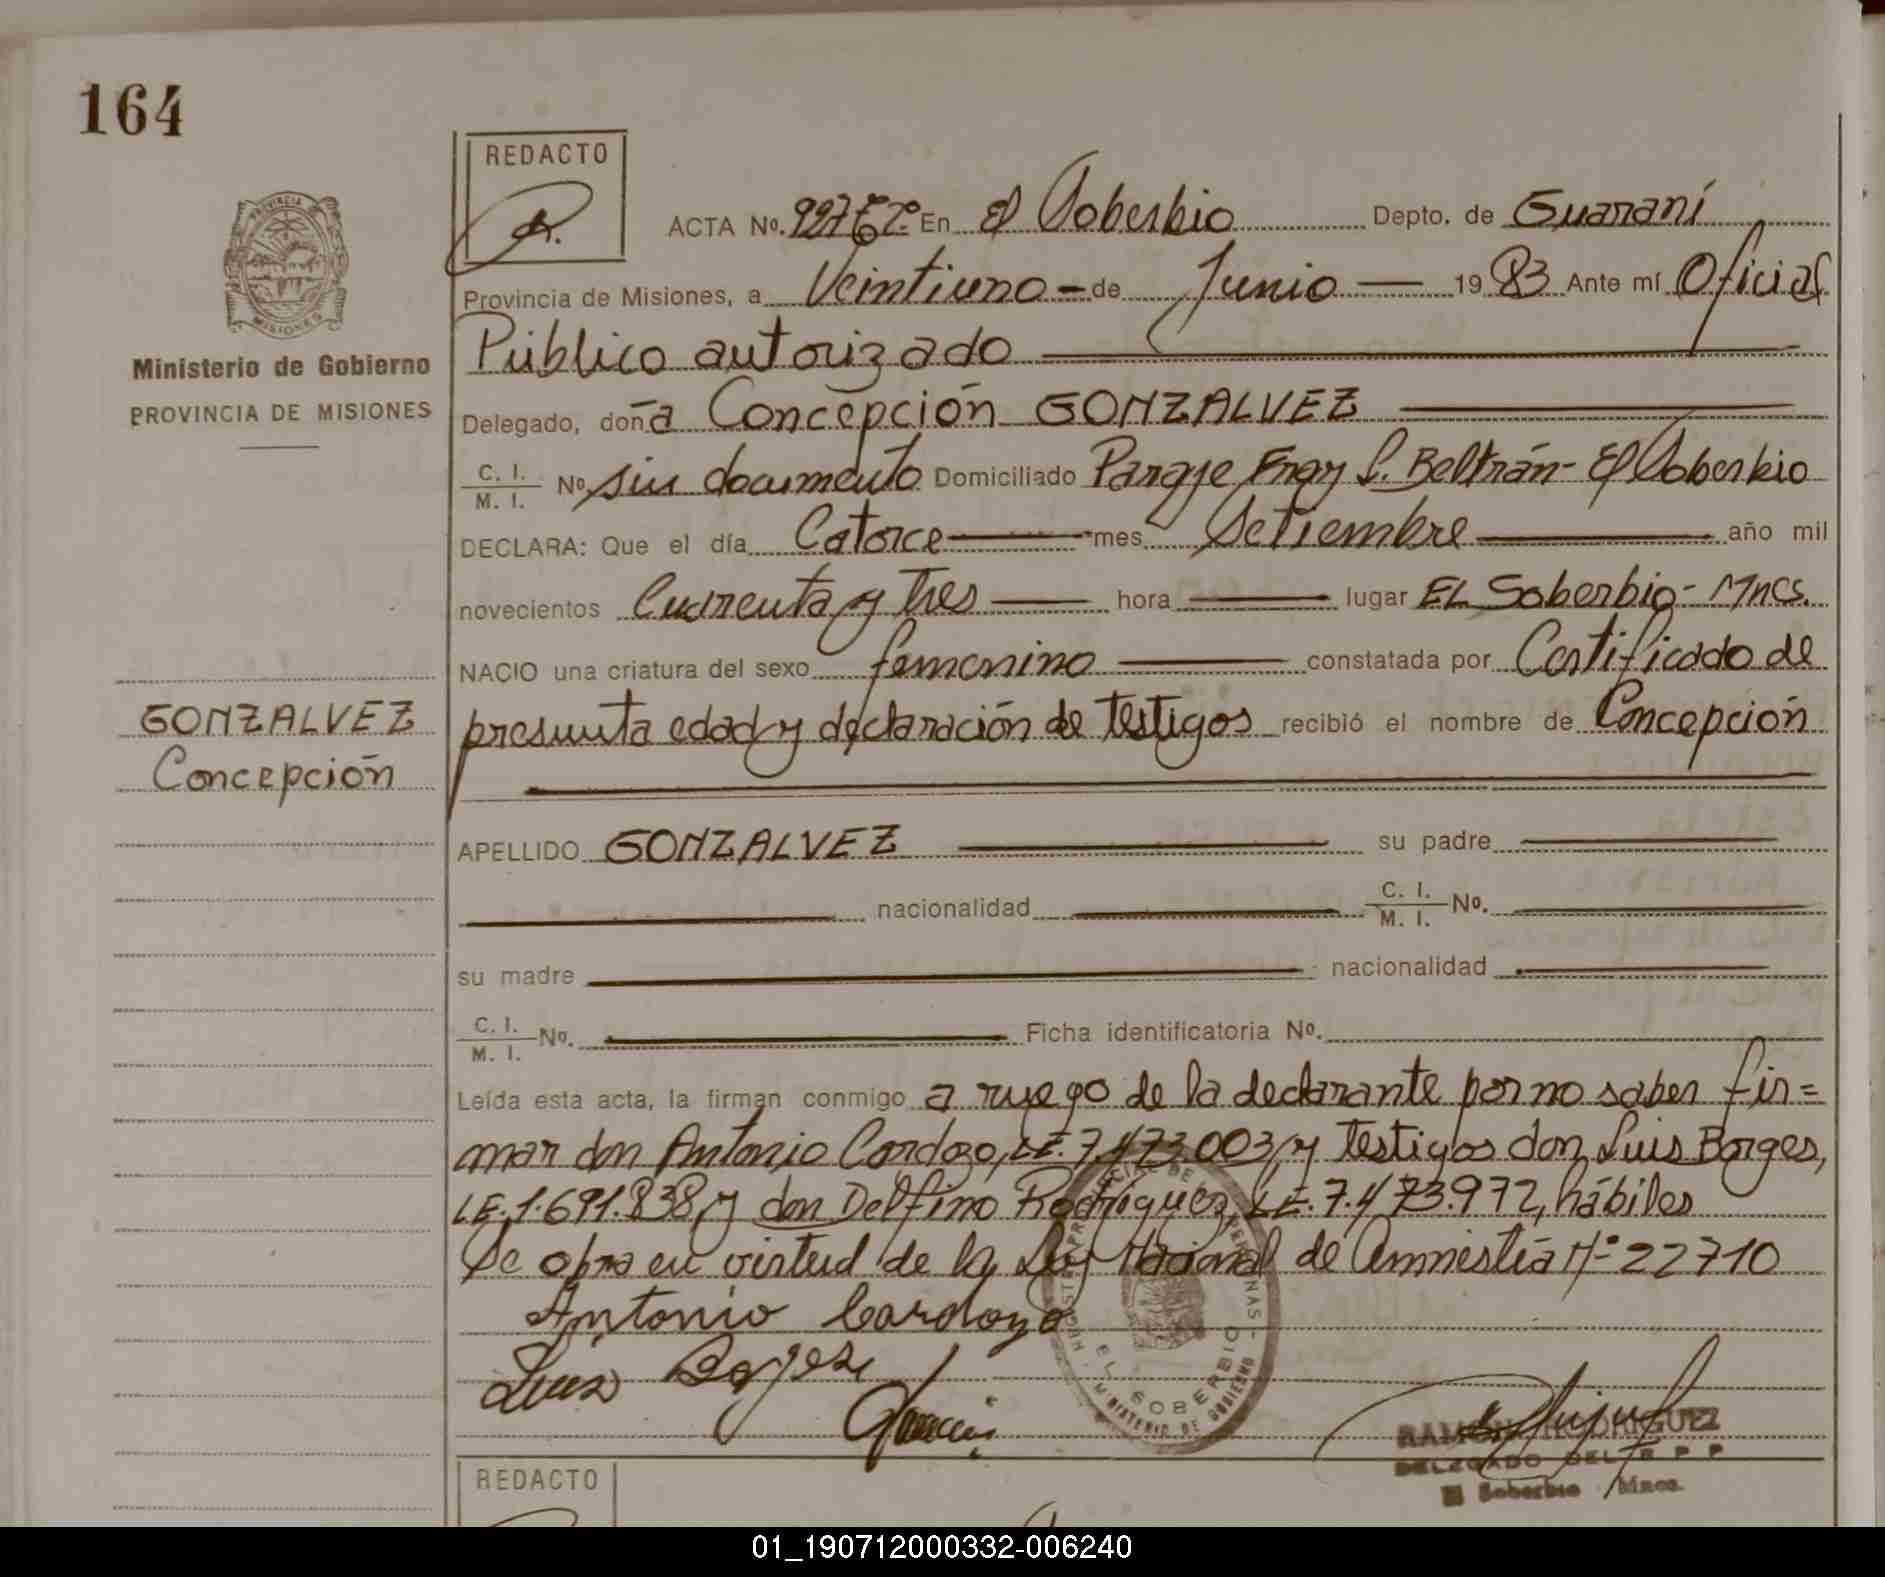 164
REDACTO
ACTA Nº. 227 Tº 2º En El Soberbio Depto. de Guaraní
Provincia de Misiones, a Veintiuno - de Junio — 1983 Ante mí Oficial
Público autorizado
Ministerio de Gobierno
PROVINCIA DE MISIONES
Delegado, doña Concepción GONZALVEZ
C. I.
M. I. Nº sin documento Domiciliado Paraje Fray L. Beltrán - El Soberbio
DECLARA: Que el día Catorce mes Setiembre año mil
novecientos Cuarenta y tres hora lugar EL Soberbio - Mnes.
NACIO una criatura del sexo femenino constatada por Certificado de
GONZALVEZ
Concepción
presunta edad y declaración de testigos recibió el nombre de Concepción
APELLIDO GONZALVEZ su padre
nacionalidad C. I.
M. I. Nº.
su madre nacionalidad
C. I.
M. I. Nº. Ficha identificatoria Nº.
Leída esta acta, la firman conmigo a ruego de la declarante por no saber fir=
mar don Antonio Cardozo, LE. 7.473.003, y testigos don Luis Borges,
LE. 1.691.838, y don Delfino Rodríguez, LE. 7.473.972, hábiles
Se obra en virtud de la Ley Nacional de Amnistía Nº 22710
Antonio Cardozo
Luis Borges
EL SOBERBIO
MINISTERIO DE GOBIERNO
RAMON RODRIGUEZ
DELEGADO DEL R P P
El Soberbio Mnes.
REDACTO
01_190712000332-006240